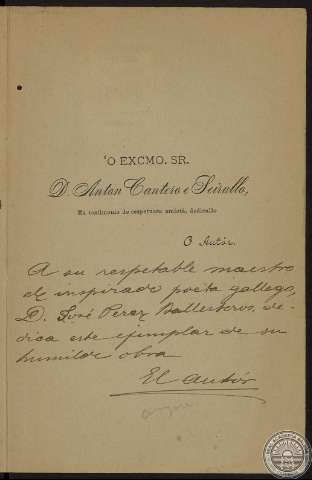 'O EXCMO. SR.
D. Anton Cantero e Seirullo,
En testimonio de respetuosa amistá, dedícalle
O Autor.
A su respetable maestro
el inspirado poeta gallego,
D. José Perez Ballesteros, de-
dica este ejemplar de su
humilde obra
El autór